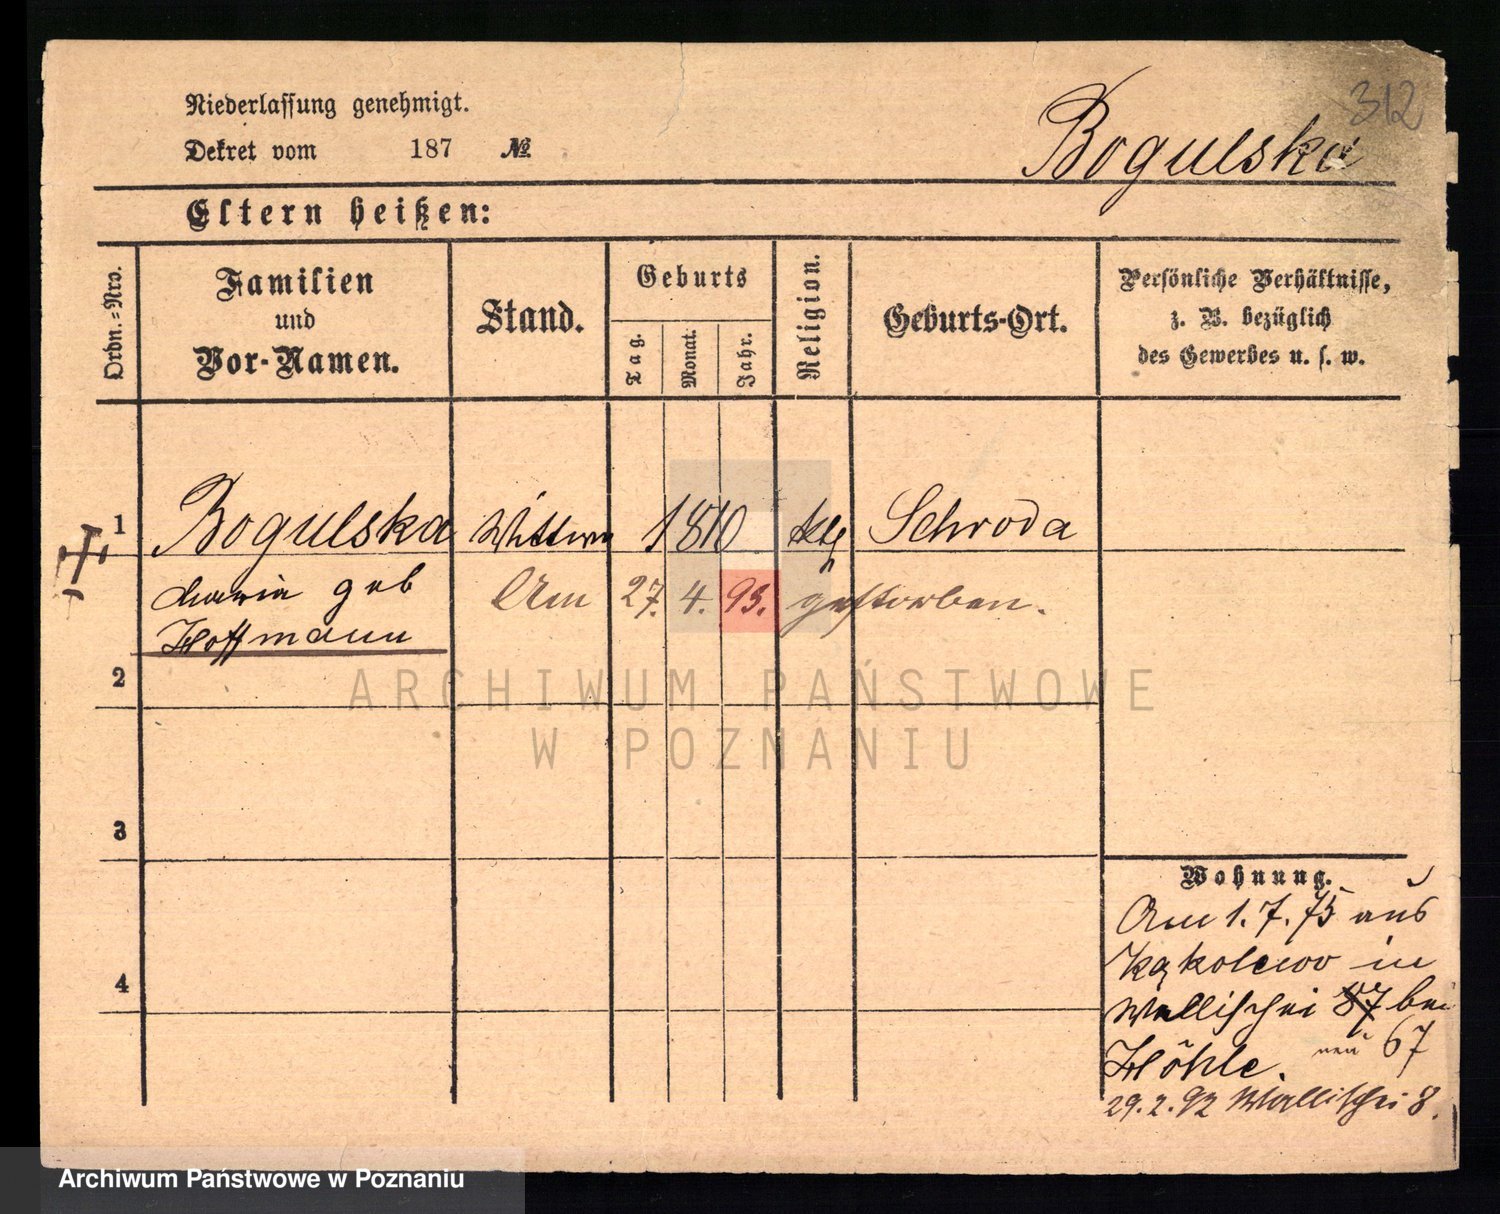 312
Niederlassung genehmigt.
Dekret vom 187 №
Bogulska
Eltern heißen:
Ordn.-Nro.
Familien und Vor-Namen.
Stand.
Geburts
Tag.
Monat.
Jahr.
Religion.
Geburts-Ort.
Persönliche Verhältnisse,
z. B. bezüglich
des Gewerbes u. s. w.
1 Bogulska Wittwe 1810 ktl Schroda
Maria geb Am 27. 4. 93. gestorben.
Hoffmann
2
ARCHIWUM PAŃSTWOWE
W POZNANIU
3
Wohnung.
Am 1. 7. 75 aus
Kąkolewo in
4
Wallischei 87 bei
Höhle. neu 67
29.2.92 Wallischei 8.
Archiwum Państwowe w Poznaniu